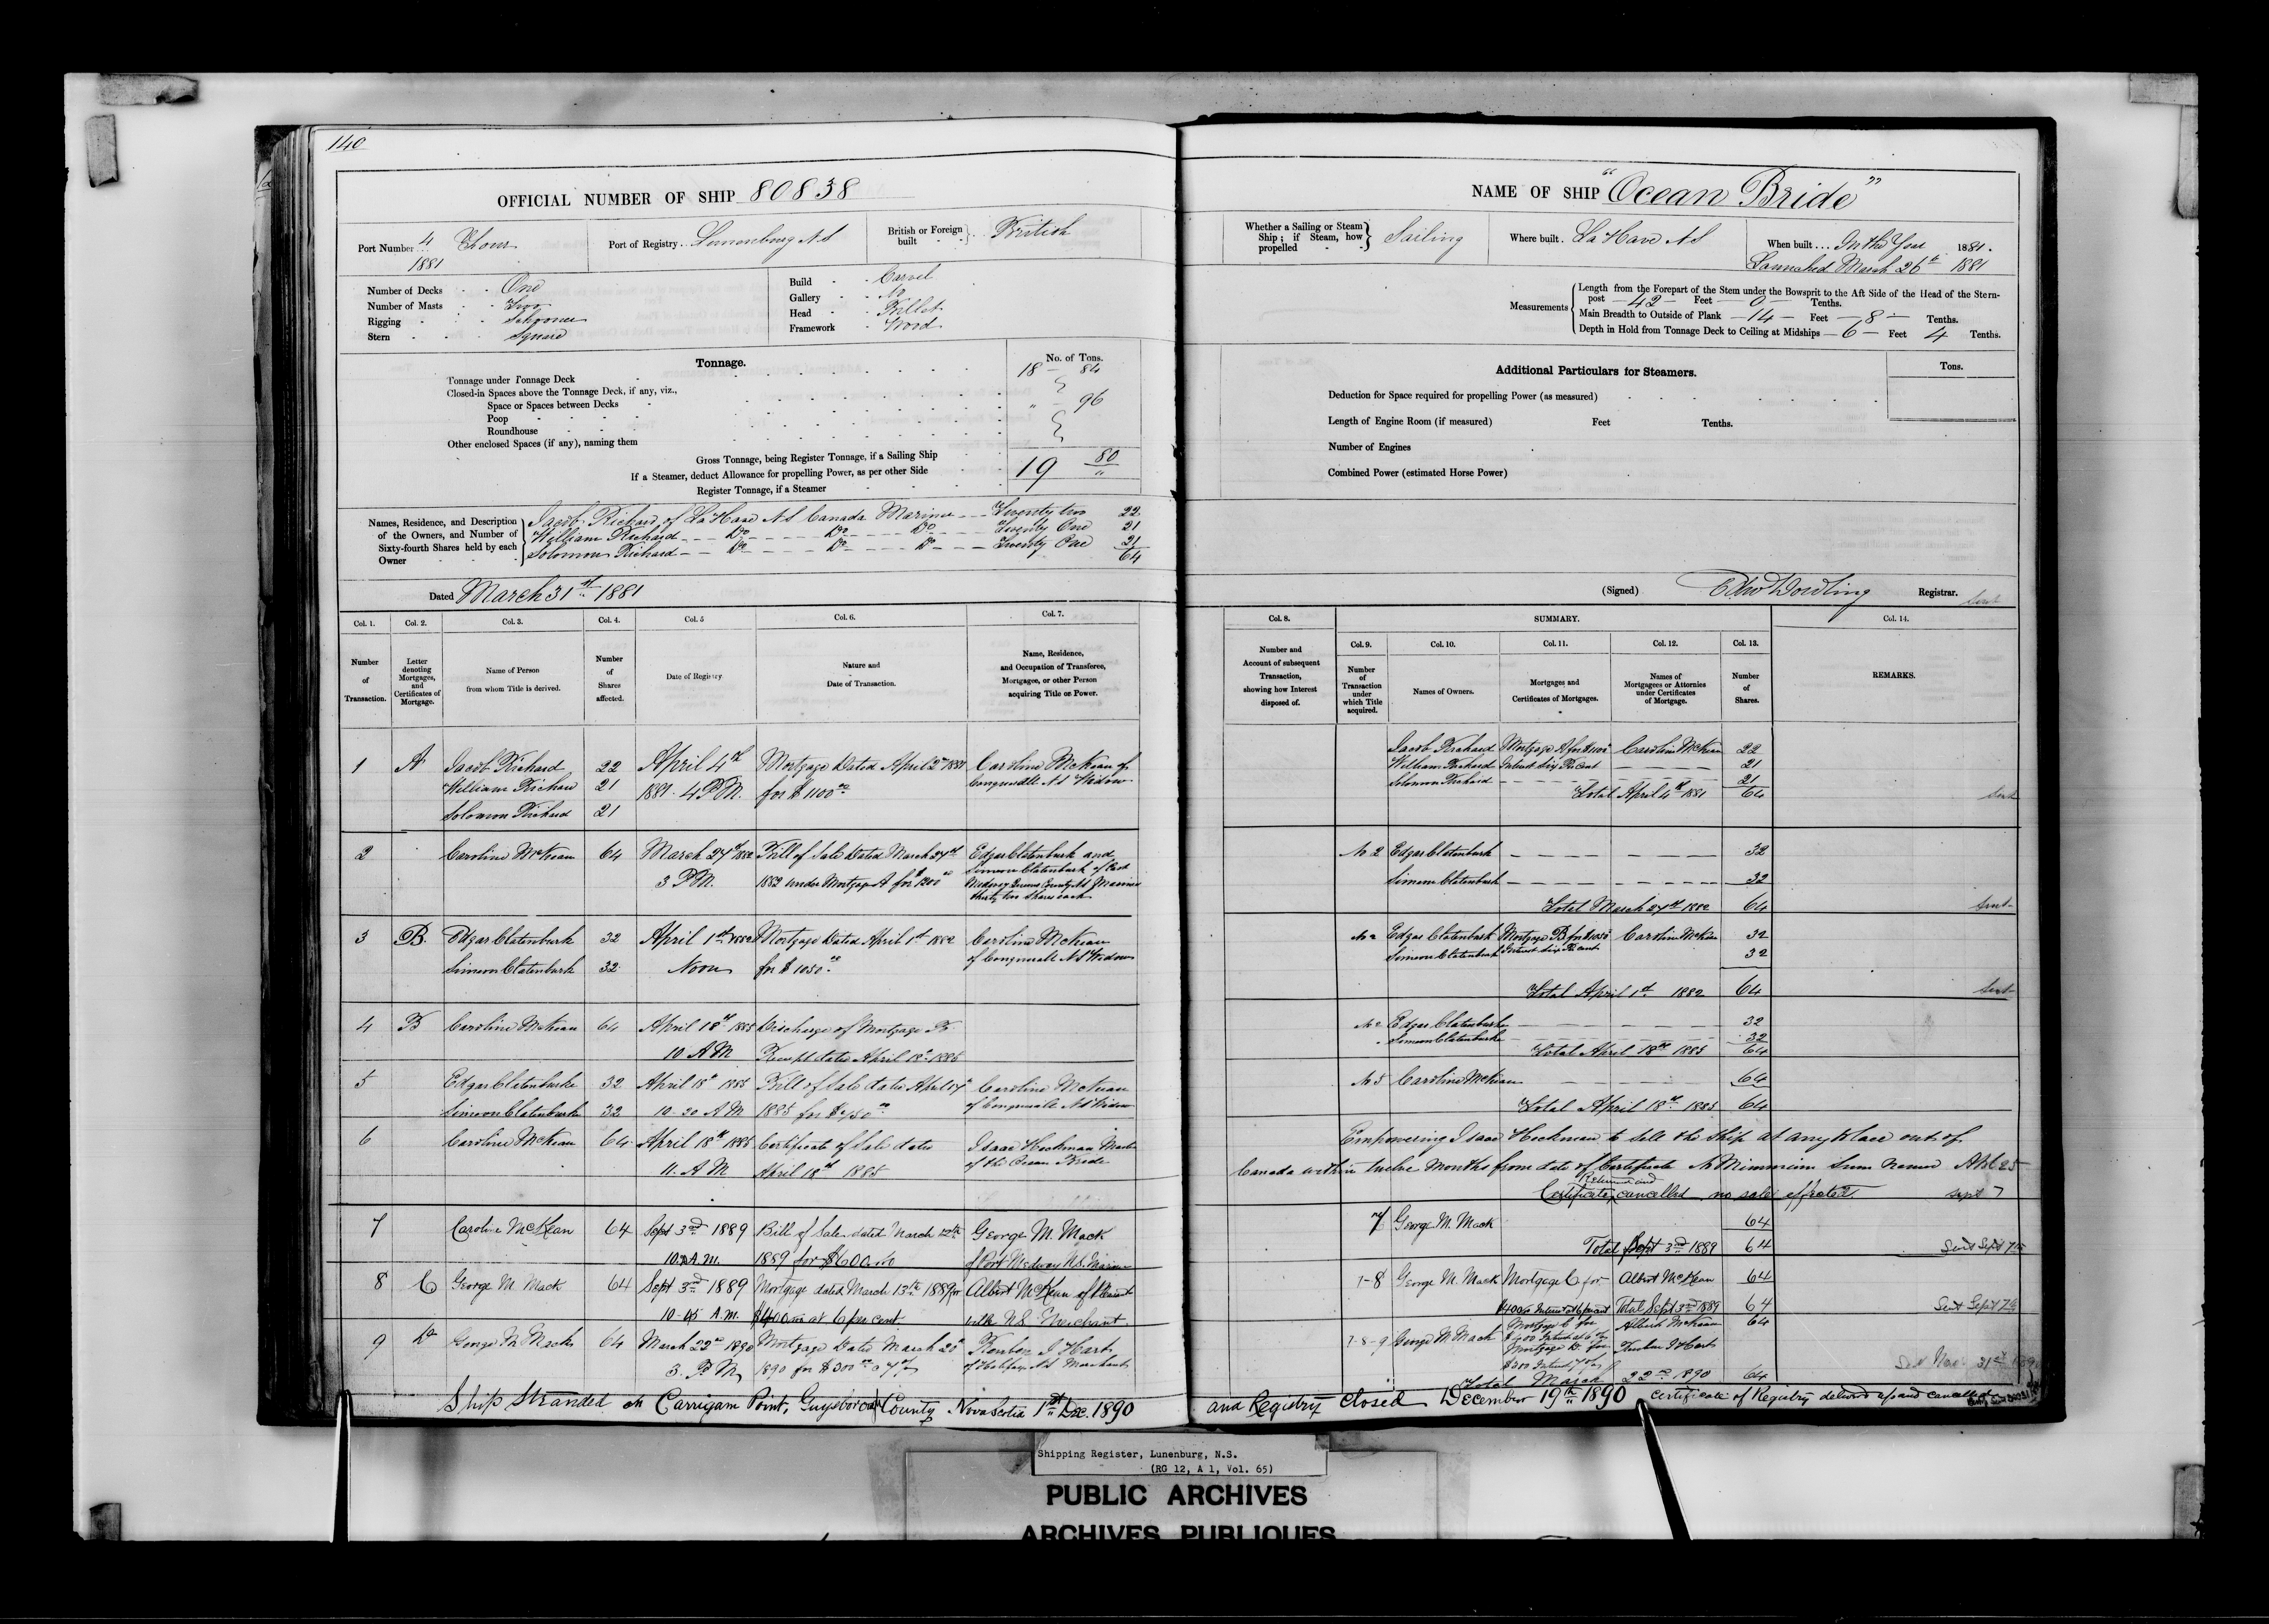 140
OFFICIAL NUMBER OF SHIP 80838
Port Number 4 Four
1881
Port of Registry Lunenburg N S
British or Foreign built British
Number of Decks One
Number of Masts Two
Rigging Schooner
Stern Square
Build Carvel
Gallery No
Head Billet
Framework Wood
Tonnage.
No. of Tons.
Tonnage under Tonnage Deck 18 84
Closed-in Spaces above the Tonnage Deck, if any, viz.,
Space or Spaces between Decks " 96
Poop
Roundhouse
Other enclosed Spaces (if any), naming them
Gross Tonnage, being Register Tonnage, if a Sailing Ship 19 80
If a Steamer, deduct Allowance for propelling Power, as per other Side "
Register Tonnage, if a Steamer
Names, Residence, and Description of the Owners, and Number of Sixty-fourth Shares held by each Owner
Jacob Richard of La Have N S Canada Mariner Twenty two 22
William Richard Do Do Do Twenty One 21
Solomon Richard Do Do Do Twenty One 21
64
Dated March 31st 1881
Col. 1. Col. 2. Col. 3. Col. 4. Col. 5 Col. 6. Col. 7.
Number of Transaction.
Letter denoting Mortgages, and Certificates of Mortgage.
Name of Person from whom Title is derived.
Number of Shares affected.
Date of Registry
Nature and Date of Transaction.
Name, Residence, and Occupation of Transferee, Mortgagee, or other Person acquiring Title or Power.
1 A Jacob Richard 22 April 4th Mortgage Dated April 2nd 1881 Caroline McKean of
William Richard 21 1881. 4 P M. for $1100 N S Widow
Solomon Richard 21
2 Caroline McKean 64 March 27th 1882 Bill of Sale Dated March 27th Edgar Clatenburk and
3 P M. 1882 under Mortgage A for $1200 Simeon Clatenburk of Port
Medway Queens County N S Mariners
thirty two Shares each
3 B. Edgar Clatenburk 32 April 1st 1882 Mortgage Dated April 1st 1882 Caroline McKean
Simeon Clatenburk 32 Noon for $1050 of N S Widow
4 B Caroline McKean 64 April 18th 1885 Discharge of Mortgage B.
10 A M Receipt dated April 18th 1885
5 Edgar Clatenburke 32 April 18th 1885 Bill of Sale dated April 17th Caroline McKean
Simeon Clatenburke 32 10-30 A M 1885 for $450 of N S Widow
6 Caroline McKean 64 April 18th 1885 Certificate of Sale dated Isaac Heckman Master
11. A M April 18th 1885 of the Ocean Bride
7 Caroline McKean 64 Sept 3rd 1889 Bill of Sale dated March 12th George M. Mack
A.M. 1889 for $600.00 of Port Medway N.S. Mariner
8 C George M. Mack 64 Sept 3rd 1889 Mortgage dated March 13th 1889 for Albert McKean of Pleasant
10.45 A.M. $400.00 at 6 per cent N S Merchant
9 D George M Mack 64 March 22nd 1890 Mortgage Dated March 20th Reuben I Hart
3. P M. 1890 for $300 @ 7 of Halifax N S Merchant
Ship Stranded on Carrigan Point, Guysboro County Nova Scotia 1st Dec. 1890
NAME OF SHIP "Ocean Bride"
Whether a Sailing or Steam Ship; if Steam, how propelled Sailing
Where built. La Have N S
When built ... In the Year 1881.
Launched March 26th 1881
Measurements
Length from the Forepart of the Stem under the Bowsprit to the Aft Side of the Head of the Stern-
post 42 Feet 0 Tenths.
Main Breadth to Outside of Plank 14 Feet 8 Tenths.
Depth in Hold from Tonnage Deck to Ceiling at Midships 6 Feet 4 Tenths.
Additional Particulars for Steamers.
Tons.
Deduction for Space required for propelling Power (as measured)
Length of Engine Room (if measured) Feet Tenths.
Number of Engines
Combined Power (estimated Horse Power)
(Signed) Edw Dowling Registrar.
Sent
Col. 8. SUMMARY. Col. 14.
Col. 9. Col. 10. Col. 11. Col. 12. Col. 13.
Number and Account of subsequent Transaction, showing how Interest disposed of.
Number of Transaction under which Title acquired.
Names of Owners.
Mortgages and Certificates of Mortgages.
Names of Mortgagees or Attornies under Certificates of Mortgage.
Number of Shares.
REMARKS.
Jacob Richard Mortgage A for $1100 Caroline McKean 22
William Richard Interest Six Per Cent 21
Solomon Richard 21
Total April 4th 1881 64 Sent
No 2 Edgar Clatenburk 32
Simeon Clatenburk 32
Total March 27th 1882 64 Sent
No 2 Edgar Clatenburk Mortgage B for $1050 Caroline McKean 32
Simeon Clatenburk Interest Six Per Cent 32
Total April 1st 1882 64 Sent
No 2 Edgar Clatenburke 32
Simeon Clatenburke 32
Total April 18th 1885 64
No 5 Caroline McKean 64
Total April 18th 1885 64
Empowering Isaac Heckman to sell the Ship at any place out of
Canada within twelve Months from date of Certificate No Minimum Sum Named Apl 25
Returned and
Certificate cancelled no sale effected. Sept 7
7 George M. Mack 64
Total Sept 3rd 1889 64 Sent Sept 7th
7-8 George M. Mack Mortgage C for Albert McKean 64
$400.00 Interest at 6 per cent Total Sept 3rd 1889 64 Sent Sept 7th
7-8-9 George M Mack Mortgage C for Albert McKean 64
$400 Interest at 6
Mortgage D. for Reuben I Hart
$300 Interest 7
Total March 22nd 1890 64
and Registry closed December 19th 1890 Certificate of Registry delivered up and cancelled
Shipping Register, Lunenburg, N.S.
(RG 12, A 1, Vol. 65)
PUBLIC ARCHIVES
ARCHIVES PUBLIQUES